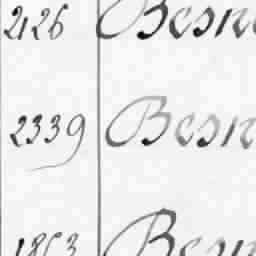 2126 Besn
2339 Besn
1863 Besn